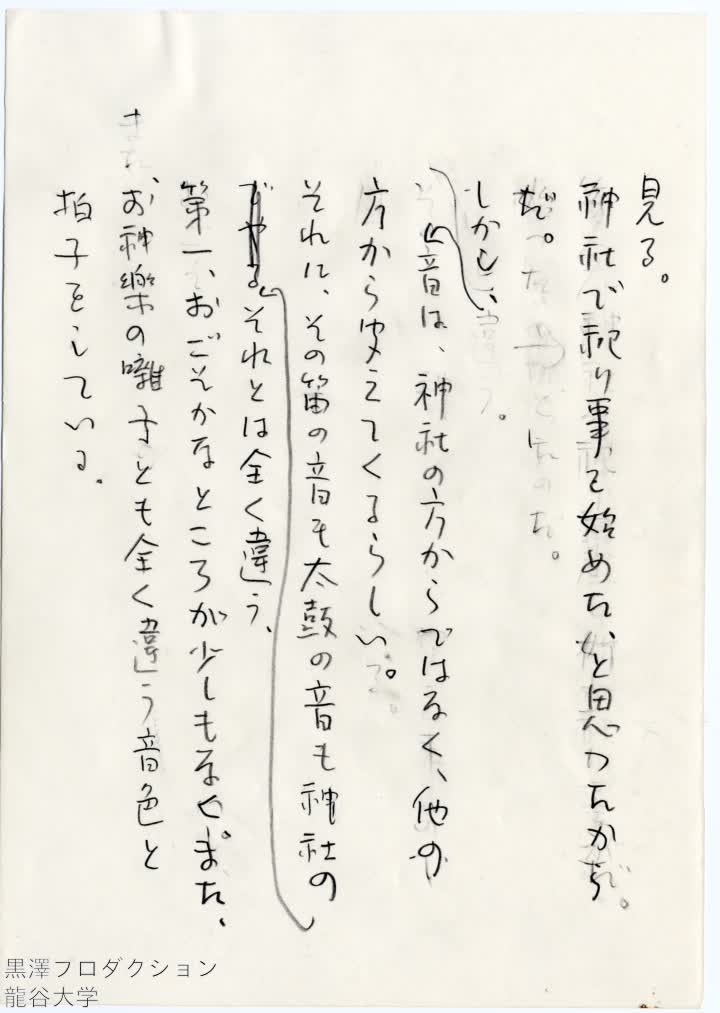 見る。
神社で祀り事を始めた、と思ったからだ。
しかし、
音は、神社の方からではなく、他の
方から聞えてくるらしい。
それに、その笛の音も太鼓の音も神社の
それとは全く違う、
第一、おごそかなところが少しもなく。また、
お神樂の囃子とも全く違う音色と
拍子をしている。
黒澤プロダクション
龍谷大学